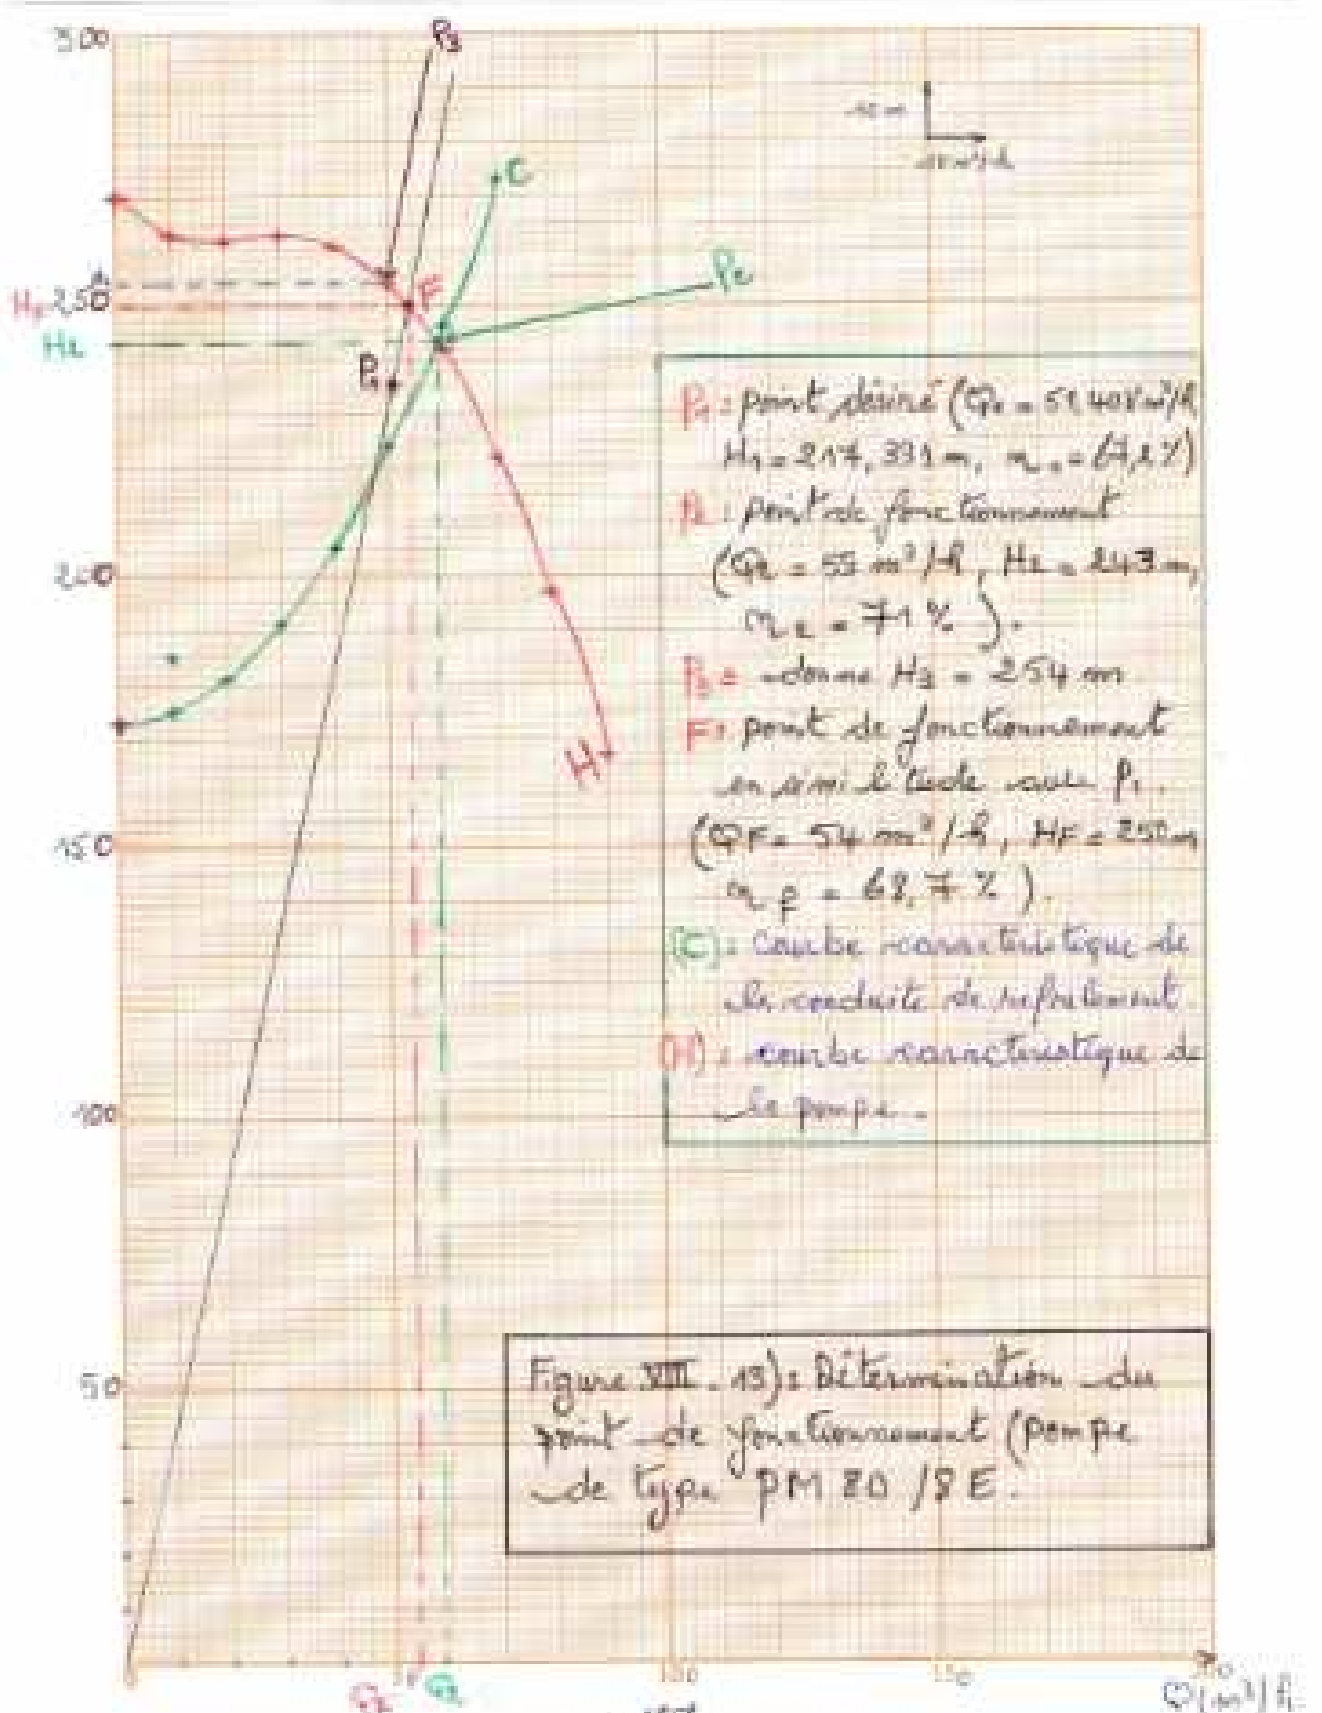 300
P3
10 m
10 m³/h
C
Pc
F
HF 250
H2
P1
200
H
150
100
50
P1: point désiré (Q1 = 51,408 m³/h
H1 = 217,331 m,
P2: point de fonctionnement
(Q2 = 59 m³/h, H2 = 243 m,
η2 = 71 %).
P3 = donne H3 = 254 m
F: point de fonctionnement
en similitude avec P1.
(QF = 54 m³/h, HF = 250 m
ηF = 68,7 %).
(C): Courbe caractéristique de
la conduite de refoulement.
(H): courbe caractéristique de
la pompe.
Figure VIII - 13): Détermination du
point de fonctionnement (pompe
de type PM 80 /8E.
0
100
150
200
Q (m³)/h